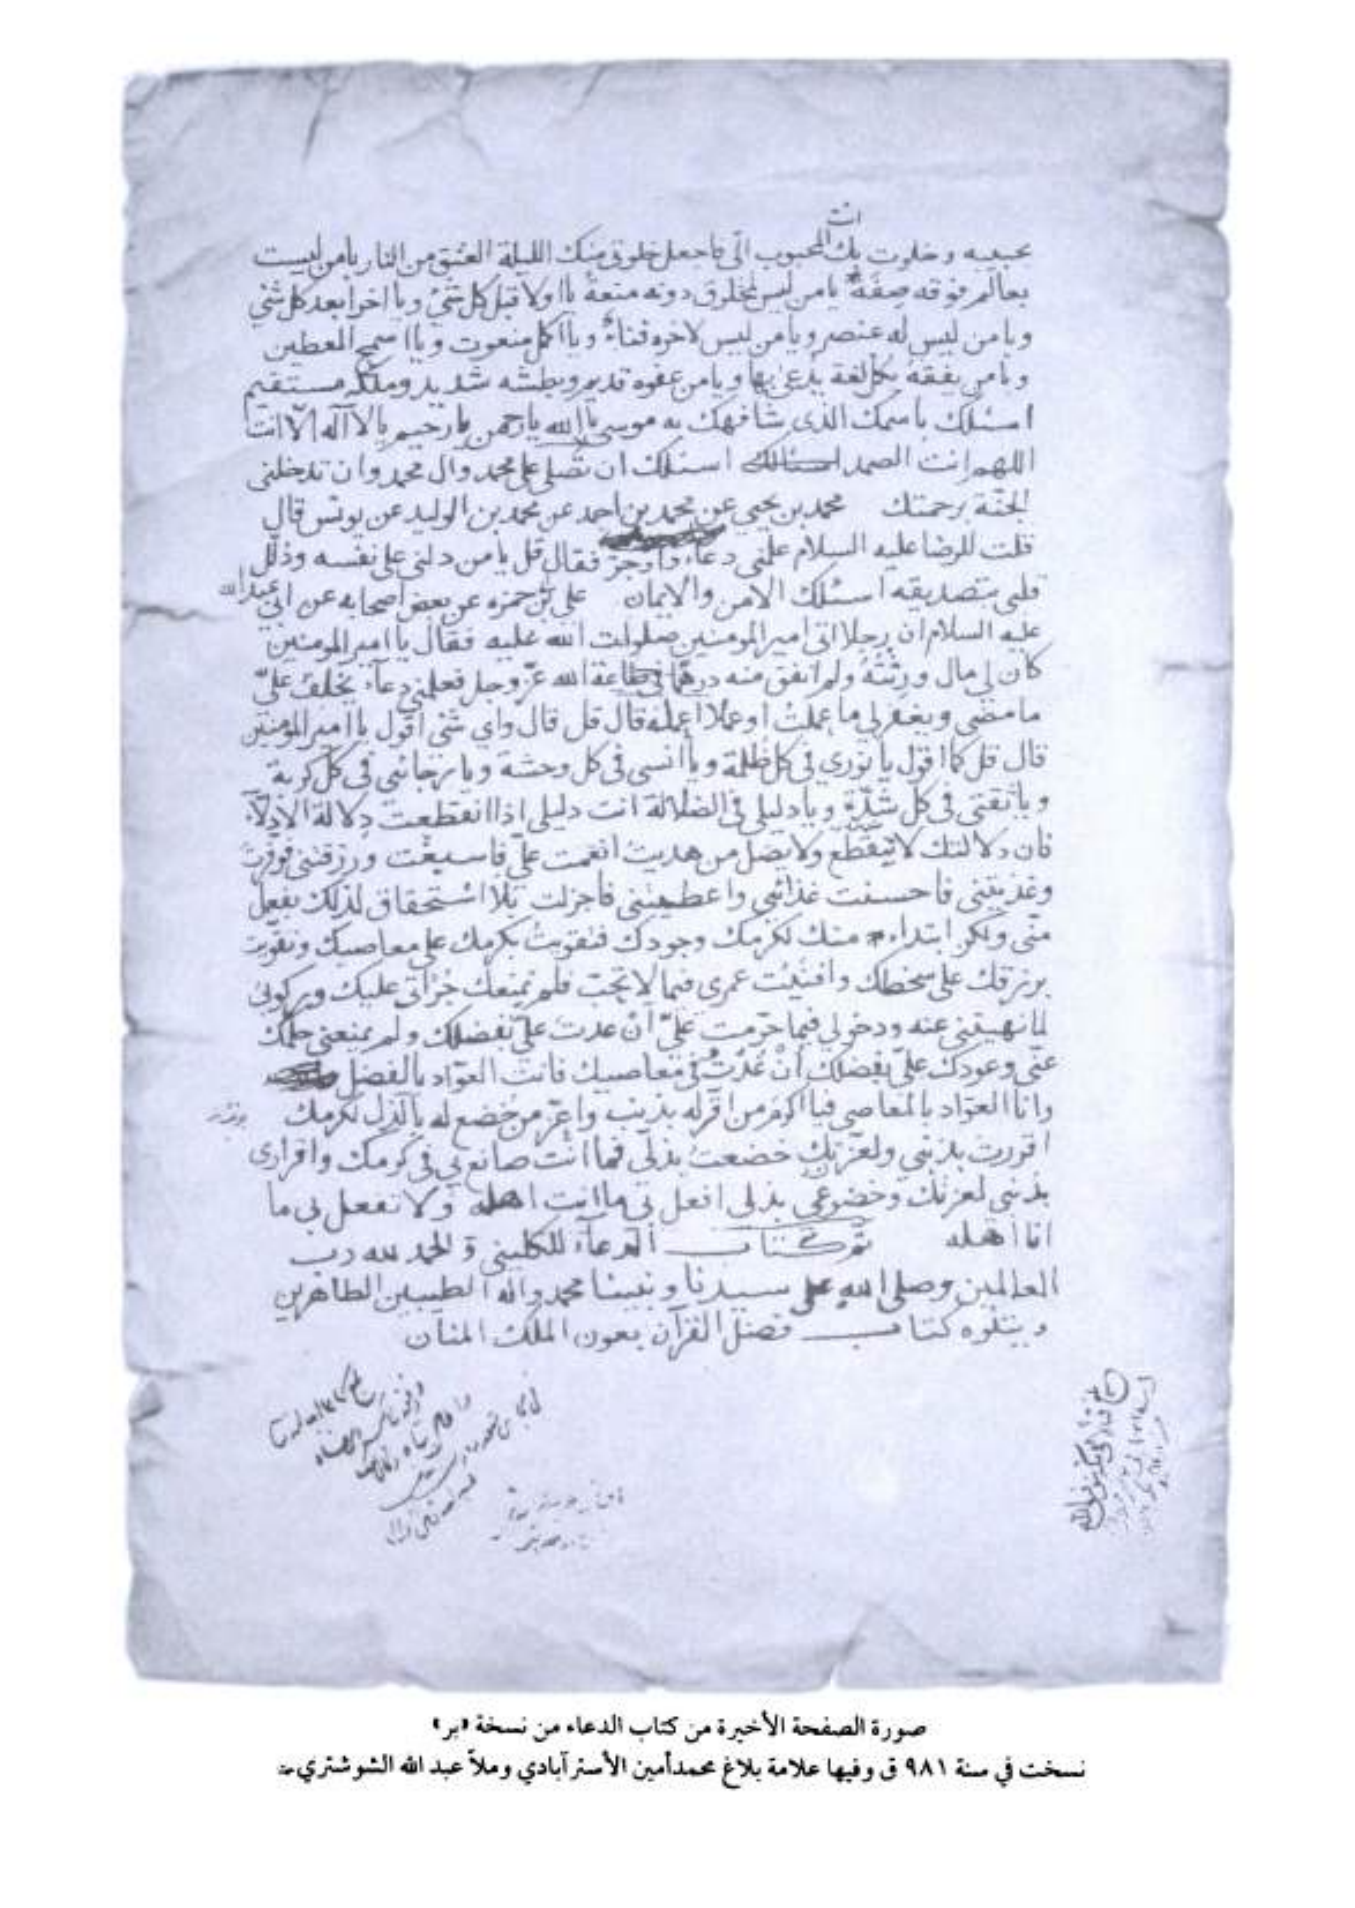 انت
بحبيبه وخلوت بك المحبوب الى فاجعل خلوتى منك الليلة العتق من النار يا من ليست
بعالم فوقه صفة يا من ليس لمخلوق دونه منعة يا اولا قبل كل شئ ويا اخرا بعد كل شئ
ويا من ليس له عنصر ويا من ليس لاخره فناء ويا اكمل منعوت ويا اسمح المعطين
ويا من يفقه بكل لغة يدعى بها ويا من عفوه قديم وبطشه شديد وملكه مستقيم
اسئلك باسمك الذى شافهك به موسى يا الله يا رحمن يا رحيم يا لا اله الا انت
اللهم انت الصمد اسئلك ان تصلى على محمد وال محمد وان تدخلنى
الجنّة برحمتك محمد بن يحيى عن محمد بن احمد عن محمد بن الوليد عن يونس قال
قلت للرضا عليه السلام علمنى دعاء واوجز فقال قل يا من دلنى على نفسه وذلّل
قلبى بتصديقه اسئلك الامن والايمان على بن حمزه عن بعض اصحابه عن ابى عبد الله
عليه السلام ان رجلا اتى امير المومنين صلوات الله عليه فقال يا امير المومنين
كان لى مال ورثته ولم انفق منه درهما فى طاعة الله عزّ وجل فعلمنى دعاء يخلف علىّ
ما مضى ويغفر لى ما عملت او عملا اعمله قال قل قال واى شئ اقول يا امير المومنين
قال قل كما اقول يا نورى فى كل ظلمة ويا انسى فى كل وحشة ويا رجائى فى كل كربة
ويا ثقتى فى كل شدّة ويا دليلى فى الضلالة انت دليلى اذا انقطعت دلالة الادلّاء
فان دلالتك لا تنقطع ولا يضل من هديت انعمت علىّ فاسبغت ورزقتنى فوفرت
وغذيتنى فاحسنت غذائى واعطيتنى فاجزلت بلا استحقاق لذلك بفعل
منّى ولكن ابتداء منك لكرمك وجودك فتقويت بكرمك على معاصيك وتقوّيت
برزقك على سخطك وافنيت عمرى فيما لا تحب فلم يمنعك جرأتى عليك وركوبى
لما نهيتنى عنه ودخولى فيما حرّمت علىّ ان عدت علىّ بفضلك ولم يمنعنى حلمك
عنّى وعودك علىّ بفضلك أنْ عُدْتُ فى معاصيك فانت العوّاد بالفضل
وانا العوّاد بالمعاصى فيا اكرم من اقر له بذنب واعزّ من خضع له بالذل لكرمك
اقررت بذنبى ولعزتك خضعت بذلّى فما انت صانع بى فى كرمك واقرارى
بذنبى لعزتك وخضوعى بذلى افعل بى ما انت اهله ولا تفعل بى ما
انا اهله تمّ كتاب الدعاء للكلينى و الحمد لله رب
العالمين وصلى الله على سيدنا ونبينا محمد واله الطيبين الطاهرين
ويتلوه كتاب فضل القرآن بعون الملك المنان
صورة الصفحة الأخيرة من كتاب الدعاء من نسخة «بر»
نسخت في سنة ٩٨١ ق وفيها علامة بلاغ محمدأمين الأسترآبادي وملاّ عبد الله الشوشتري